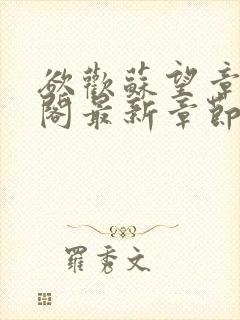 欲歡蘇望章
閣最新章節
羅秀文